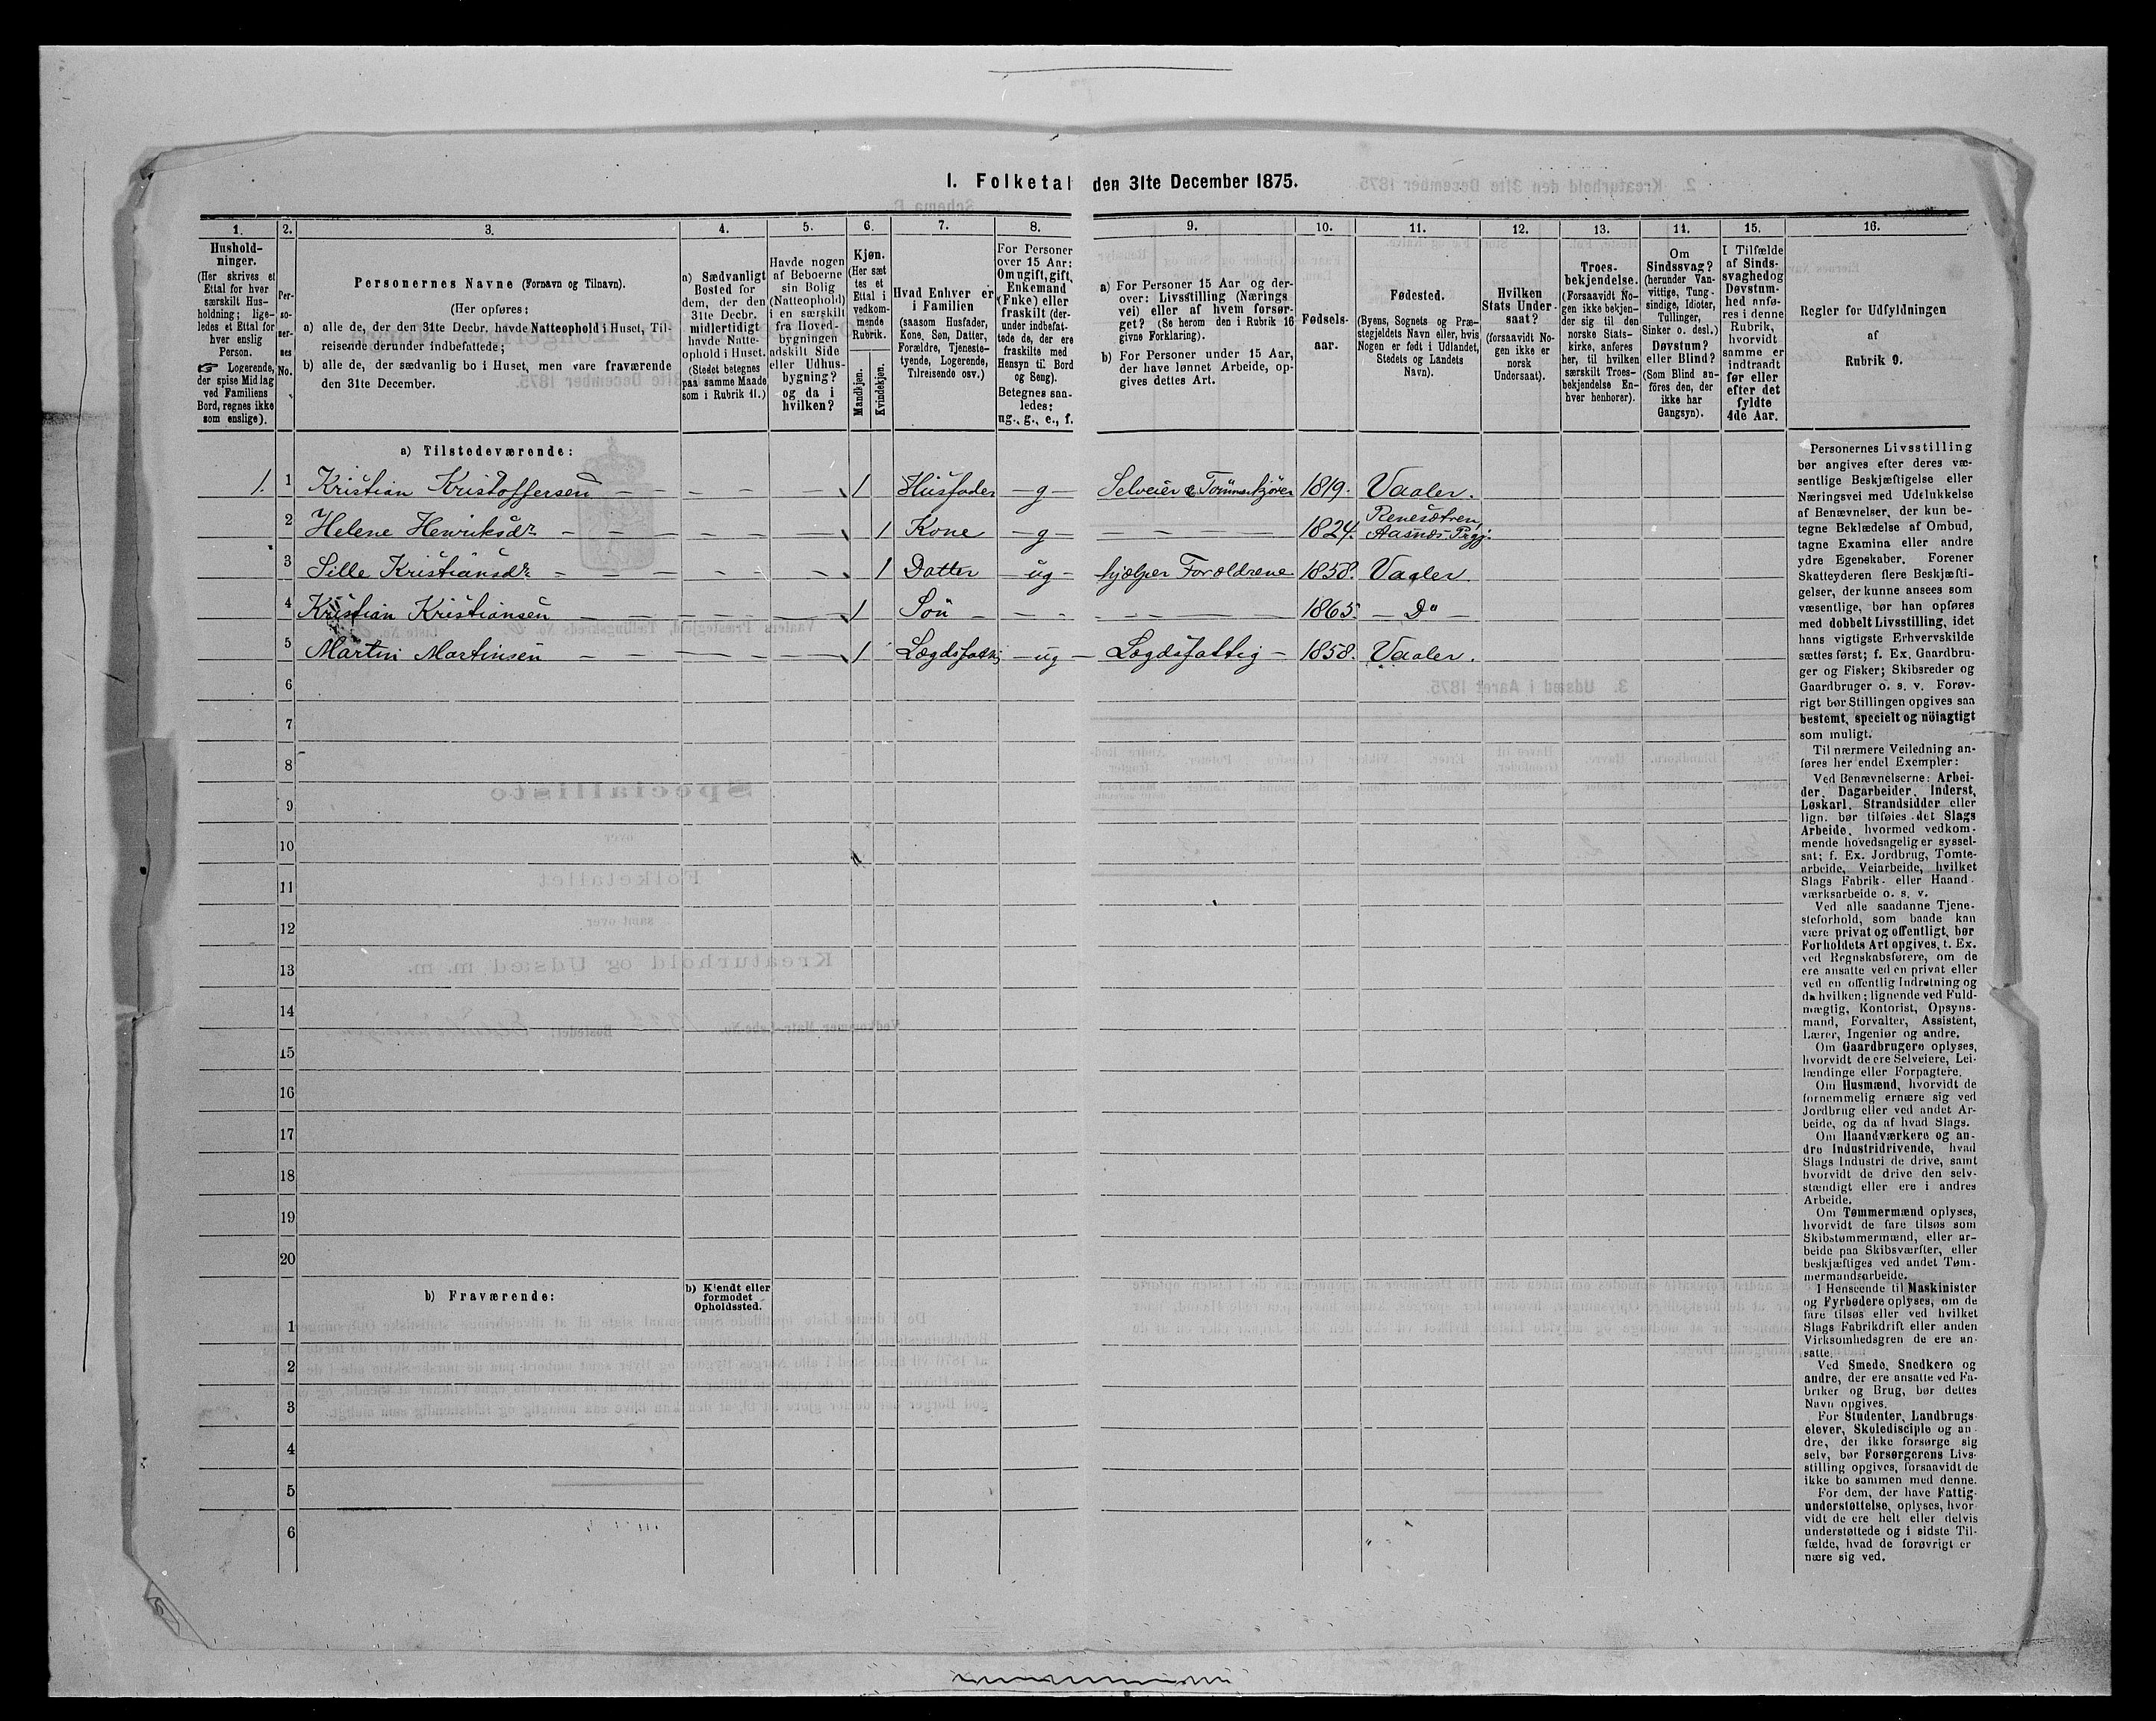 I. Folketal den 31te December 1875.
1. 2. 3. 4. 5. 6. 7. 8. 9. 10. 11. 12. 13. 14. 15. 16.
Hushold-
ninger.
(Her skrives et
Ettal for hver
særskilt Hus-
holdning; lige-
ledes et Ettal for
hver enslig
Person.
☞ Logerende,
der spise Middag
ved Familiens
Bord, regnes ikke
som enslige).
Per-
so-
ner-
nes
No.
Personernes Navne (Fornavn og Tilnavn).
(Her opføres:
a) alle de, der den 31te Decbr. havde Natteophold i Huset, Til-
reisende derunder indbefattede;
b) alle de, der sædvanlig bo i Huset, men vare fraværende
den 31te December.
a) Sædvanligt
Bosted for
dem, der den
31te Decbr.
midlertidigt
havde Natte-
ophold i Huset.
(Stedet betegnes
paa samme Maade
som i Rubrik 11.)
Havde nogen
af Beboerne
sin Bolig
(Natteophold)
i en særskilt
fra Hoved-
bygningen
adskilt Side
eller Udhus-
bygning?
og da i
hvilken?
Kjøn.
(Her sæt
tes et
Ettal i
vedkom-
mende
Rubrik.
Mandkjøn.
Kvindekjøn.
Hvad Enhver er
i Familien
(saasom Husfader,
Kone, Søn, Datter,
Forældre, Tjeneste-
tyende, Logerende,
Tilreisende osv.)
For Personer
over 15 Aar:
Om ugift, gift,
Enkemand
(Enke) eller
fraskilt (der-
under indbefat-
tede de, der ere
fraskilte med
Hensyn til Bord
og Seng).
Betegnes saa-
ledes:
ug., g., e., f.
a) For Personer 15 Aar og der-
over: Livsstilling (Nærings
vei) eller af hvem forsør-
get? (Se herom den i Rubrik 16
givne Forklaring).
b) For Personer under 15 Aar,
der have lønnet Arbeide, op-
gives dettes Art.
Fødsels-
aar.
Fødested.
(Byens, Sognets og Præ-
stegjeldets Navn eller, hvis
Nogen er født i Udlandet,
Stedets og Landets
Navn).
Hvilken
Stats Under-
saat?
(forsaavidt No-
gen ikke er
norsk
Undersaat).
Troes-
bekjendelse.
(Forsaavidt No-
gen ikke bekjen-
der sig til den
norske Stats-
kirke, anføres
her, til hvilken
særskilt Troes-
bekjendelse En-
hver henhører).
Om
Sindssvag?
(herunder Van-
vittige, Tung-
sindige, Idioter,
Tullinger,
Sinker o. desl.)
Døvstum?
eller Blind?
(Som Blind an-
føres den, der
ikke har
Gangsyn).
I Tilfælde
af Sinds-
svaghed og
Døvstum-
hed anfø-
res i denne
Rubrik,
hvorvidt
samme er
indtraadt
før eller
efter det
fyldte
4de Aar.
Regler for Udfyldningen
af
Rubrik 9.
a) Tilstedeværende:
1. 1 Kristian Kristoffersen 1 Husfader g Selveier & Tømmerkjører 1819. Vaaler.
2 Helene Henriksdr 1 Kone g 1824. Renesætren, Aasnæs Prgj.
3 Sille Kristiansdr 1 Datter ug hjælper Forældrene 1858. Vaaler.
4 Kristian Kristiansen 1 Søn 1865. Do
5 Martin Martinsen 1 Lægdsfattig ug Lægdsfattig 1858. Vaaler.
6
7
8
9
10
11
12
13
14
15
16
17
18
19
20
b) Fraværende:
b) Kjendt eller
formodet
Opholdssted.
1
2
3
4
5
6
Personernes Livsstilling
bør angives efter deres væ-
sentlige Beskjæftigelse eller
Næringsvei med Udelukkelse
af Benævnelser, der kun be-
tegne Beklædelse af Ombud,
tagne Examina eller andre
ydre Egenskaber. Forener
Skatteyderen flere Beskjæfti-
gelser, der kunne ansees som
væsentlige, bør han opføres
med dobbelt Livsstilling, idet
hans vigtigste Erhvervskilde
sættes først; f. Ex. Gaardbru-
ger og Fisker; Skibsreder og
Gaardbruger o. s. v. Forøv-
rigt bør Stillingen opgives saa
bestemt, specielt og nöiagtigt
som muligt.
Til nærmere Veiledning an-
føres her endel Exempler:
Ved Benævnelserne: Arbei-
der, Dagarbeider, Inderst,
Løskarl, Strandsidder eller
lign. bør tilføies det Slags
Arbeide, hvormed vedkom-
mende hovedsagelig er syssel-
sat; f. Ex. Jordbrug, Tomte-
arbeide, Veiarbeide, hvilket
Slags Fabrik- eller Haand-
værksarbeide o. s. v.
Ved alle saadanne Tjene-
steforhold, som baade kan
være privat og offentligt, bør
Forholdets Art opgives, t. Ex.
ved Regnskabsførere, om de
ere ansatte ved en privat eller
ved en offentlig Indretning og
da hvilken; lignende ved Fuld-
mægtig, Kontorist, Opsyns-
mand, Forvalter, Assistent,
Lærer, Ingeniør og andre.
Om Gaardbrugere oplyses,
hvorvidt de ere Selveiere, Lei-
lændinge eller Forpagtere.
Om Husmænd, hvorvidt de
fornemmelig ernære sig ved
Jordbrug eller ved andet Ar-
beide, og da af hvad Slags.
Om Haandværkere og an-
dre Industridrivende, hvad
Slags Industri de drive, samt
hvorvidt de drive den selv-
stændigt eller ere i andres
Arbeide.
Om Tømmermænd oplyses,
hvorvidt de fare tilsøs som
Skibstømmermænd, eller ar-
beide paa Skibsværfter, eller
beskjæftiges ved andet Tøm-
mermandsarbeide.
I Henseende til Maskinister
og Fyrbødere oplyses, om de
fare tilsøs eller ved hvilket
Slags Fabrikdrift eller anden
Virksomhedsgren de ere an-
satte.
Ved Smede, Snedkere og
andre, der ere ansatte ved Fa-
briker og Brug, bør dettes
Navn opgives.
For Studenter, Landbrugs-
elever, Skoledisciple og an-
dre, der ikke forsørge sig
selv, bør Forsørgerens Livs-
stilling opgives, forsaavidt de
ikke bo sammen med denne.
For dem, der have Fattig-
understøttelse, oplyses, hvor-
vidt de ere helt eller delvis
understøttede og i sidste Til-
fælde, hvad de forøvrigt er
nære sig ved.